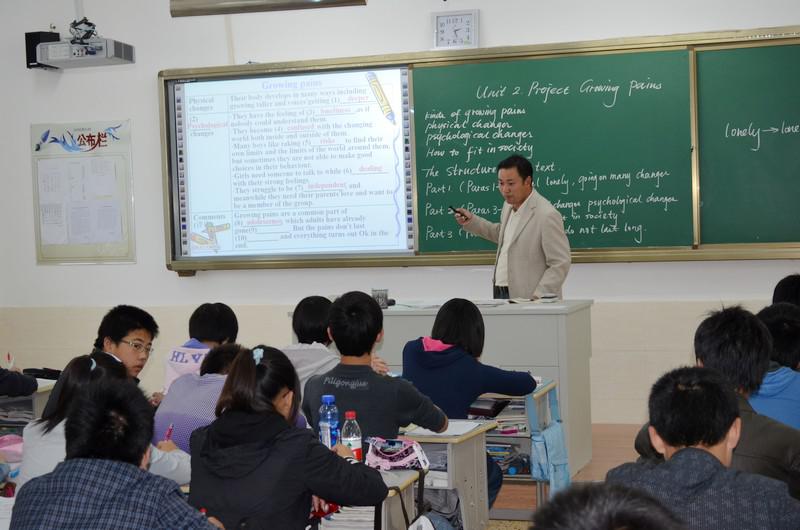 Growing pains
Physical changes
Their body develops in many ways including
growing taller and voices getting (1) deeper
(2) Psychological changes
They have the feeling of (3) loneliness as if
nobody could understand them.
They become (4) confused with the changing
world both inside and outside of them.
Many boys like taking (5) risks to find their
own limits and the limits of the world around them,
but sometimes they are not able to make good
choices in their behaviour.
Girls need someone to talk to while (6) dealing
with their strong feelings.
They struggle to be (7) independent and
meanwhile they need their parents' love and want to
be a member of the group.
Comments
Growing pains are a common part of
(8) adolescence, which adults have already
gone(9) But the pains don't last
(10) and everything turns out Ok in the
end.
Unit 2. Project Growing Pains
kinds of growing pains
physical changes
psychological changes
How to fit in society
The Structure text
Part 1 (Para 1 lonely, going on many changes
Part 2 (Paras 3- changes psychological changes
in society
Part 3 do not last long.
lonely → lone
公布栏
HLV
Piligongjue